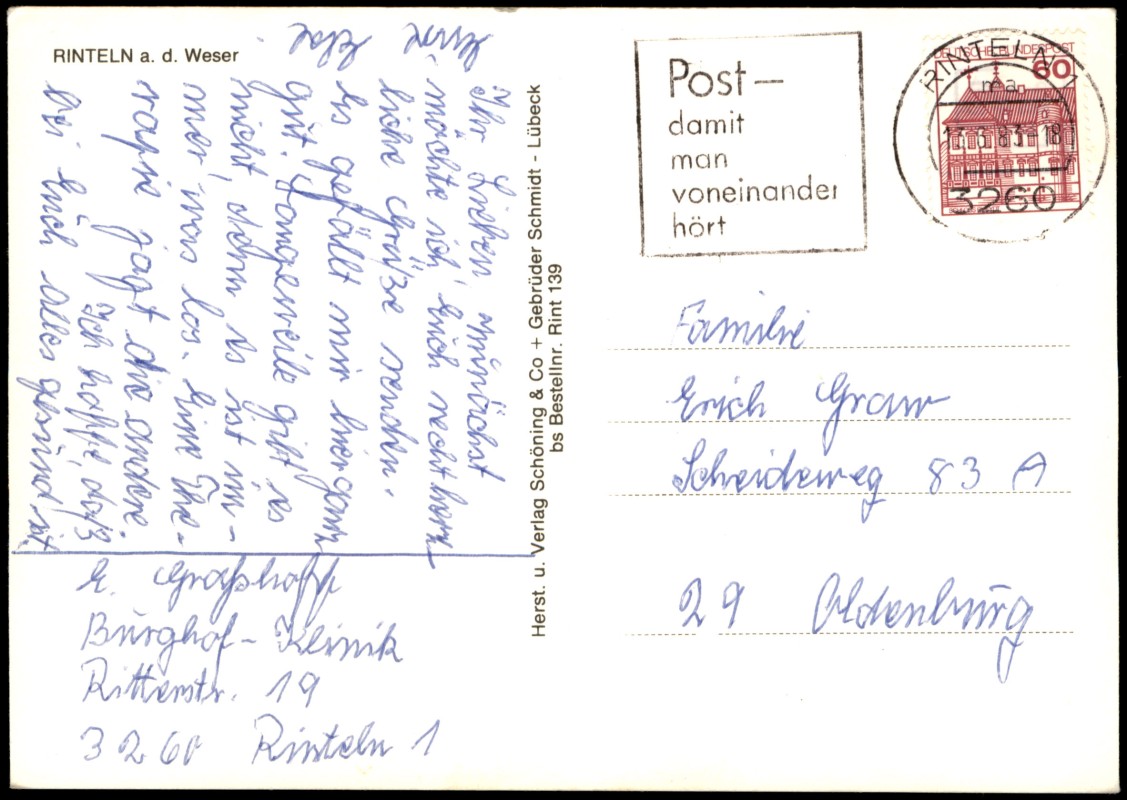 RINTELN a. d. Weser
Ihr Lieben, zunächst
möchte ich Euch recht herz-
liche Grüße senden.
Es gefällt mir hier ganz
gut. Langeweile gibt es
nicht, denn es ist im-
mer was los. Eine The-
rapie jagt die andere.
Ich hoffe, daß
bei Euch alles gesund ist.
E. Graßhoff
Burghof-Klinik
Ritterstr. 19
3260 Rinteln 1
Herst. u. Verlag Schöning & Co + Gebrüder Schmidt - Lübeck
bs Bestellnr. Rint 139
Post—
damit
man
voneinander
hört
DEUTSCHE BUNDESPOST
60
RINTELN 1
ma
13.3.83-18
3260
Familie
Erich Graw
Scheideweg 83 A
29 Oldenburg